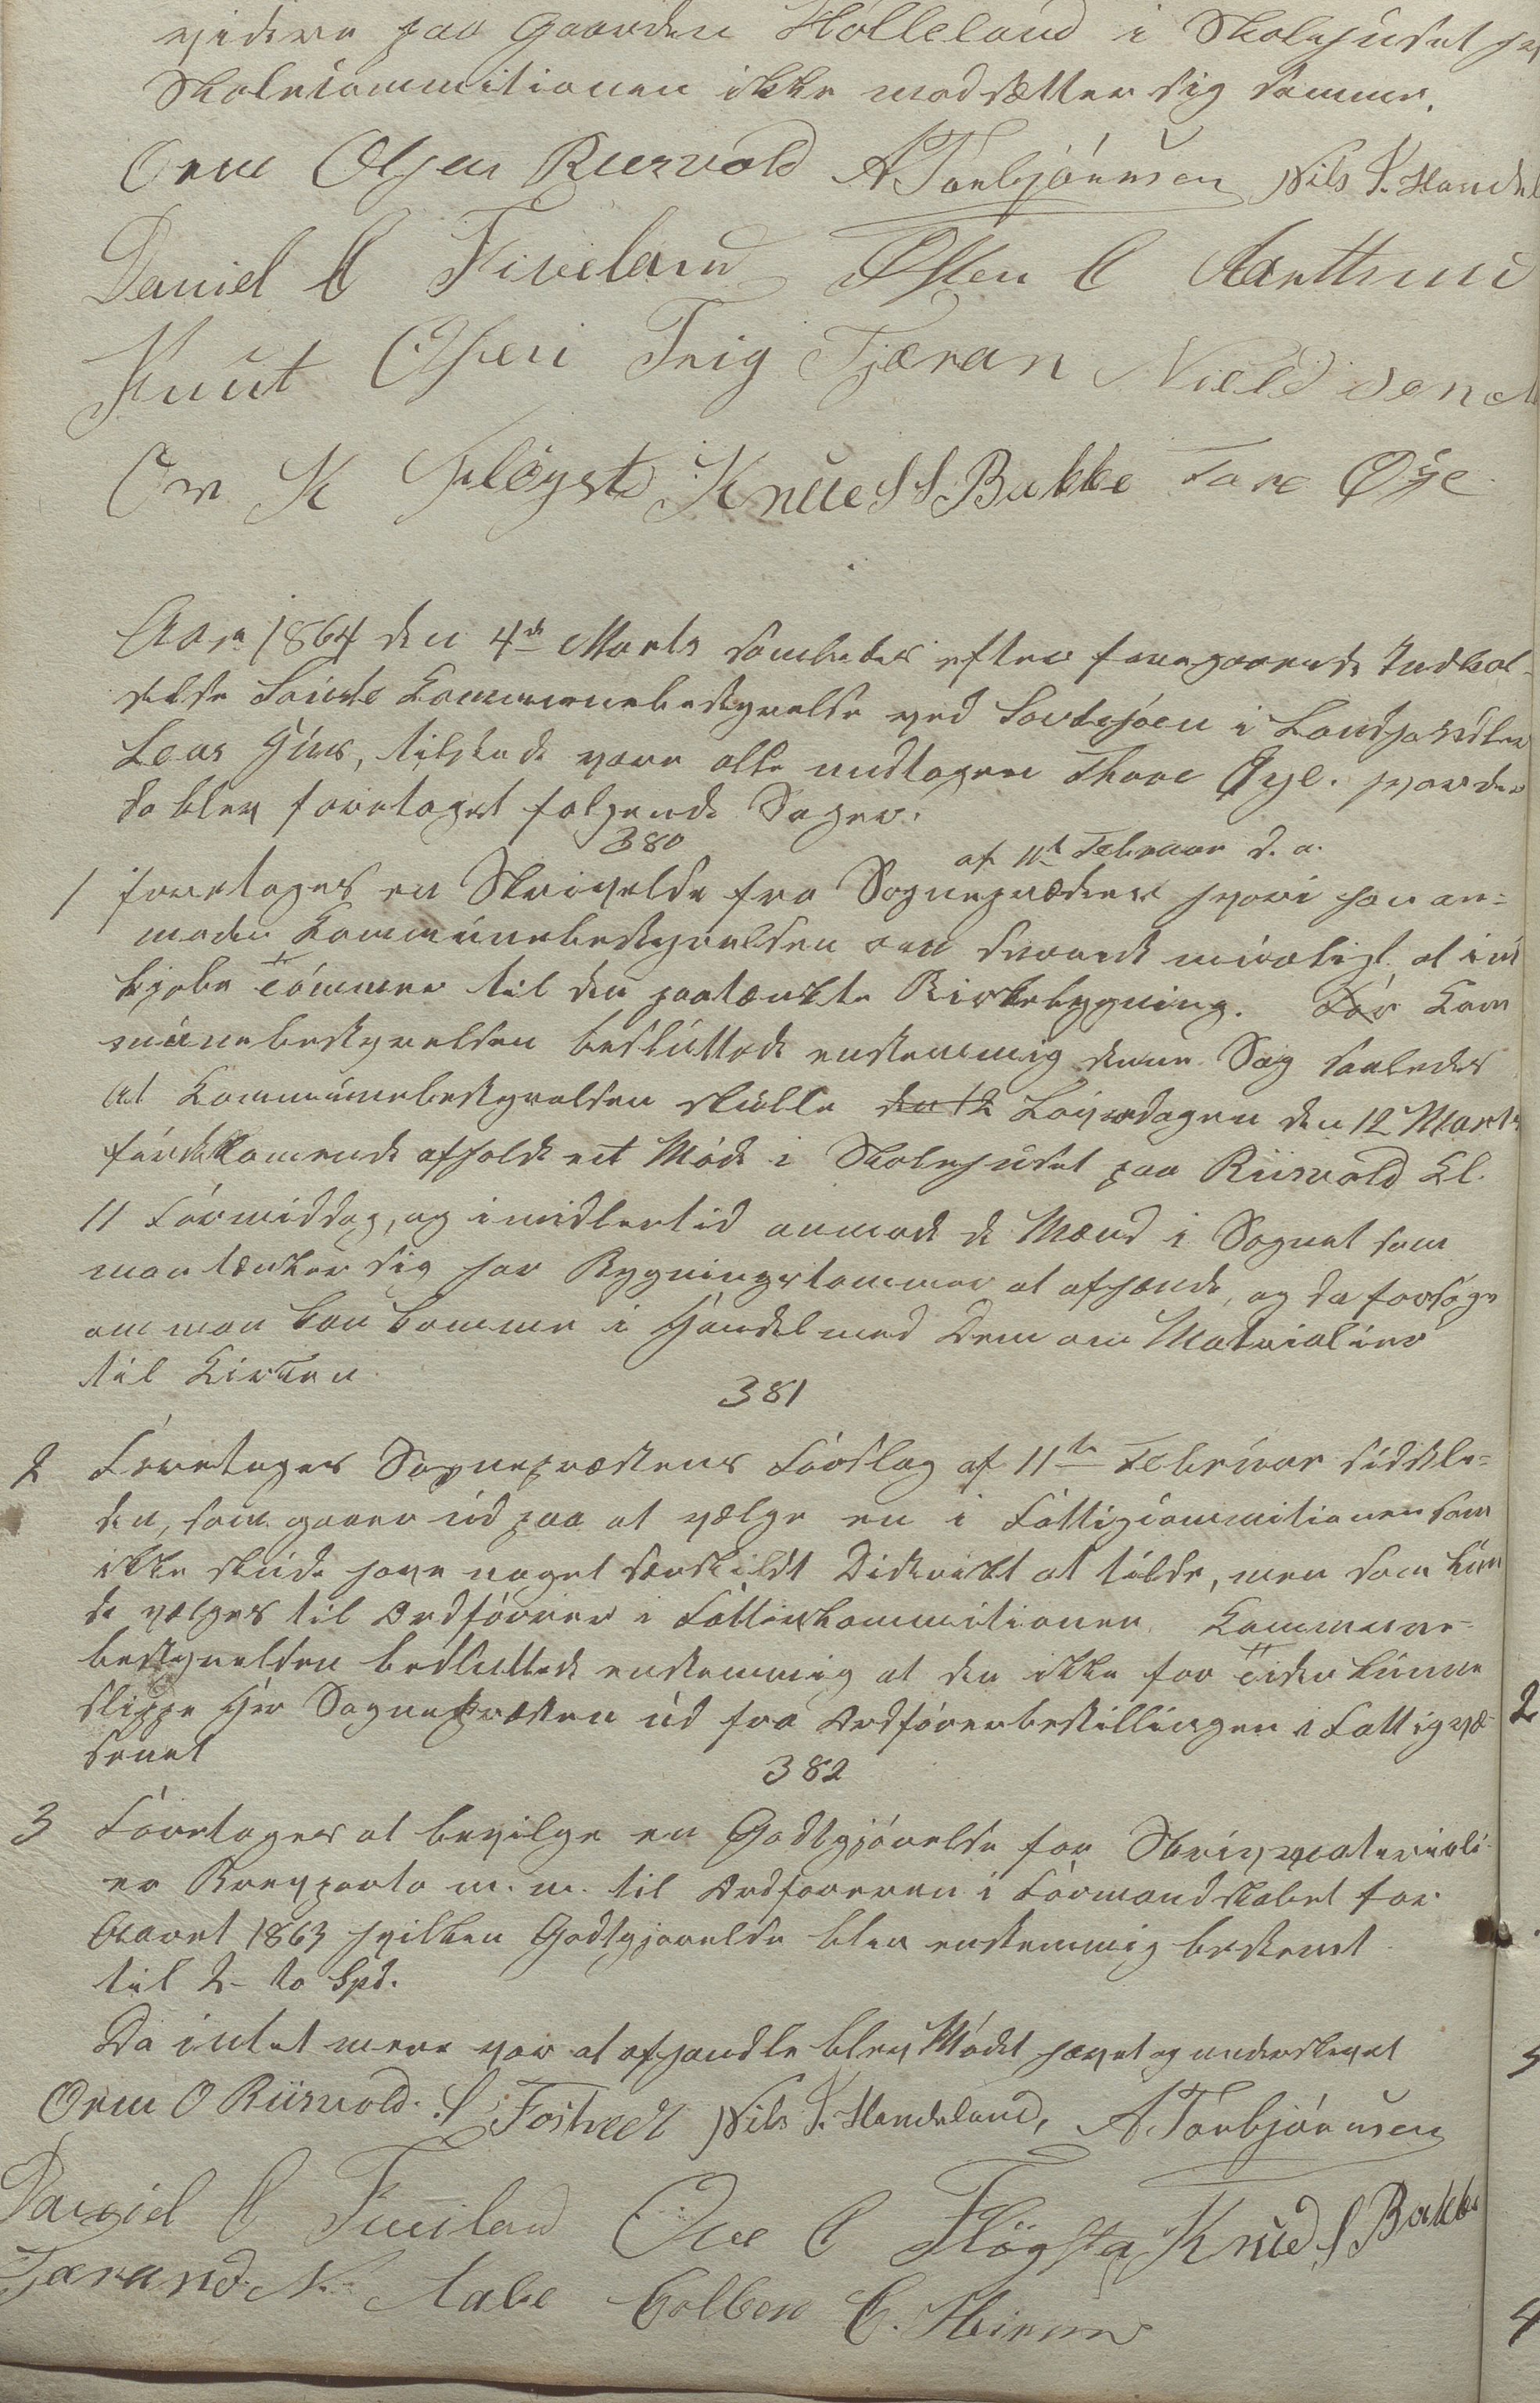 videre paa Gaarden Hölleland i Skolehuset
Skolecommitionen ikke modsætter sig samme.
Orm Olsen Riisvold A Torbjörnsen Nils J. Handel
Daniel O Fiveland Östen O
Knut Olsen Trig Tjæran
K Flögst Knue S S Bakke Tore Öye
Aar 1864 den 4de Marts samledes efter foregaaende Indkal-
delse Saude Kommunebestyrelse ved Sovdesjöen i Landhandler
Leas Huus, tilstæde vare alle undtagen Thore Öye. hvor der
da blev foretaget folgende Sager.
380
af 11te Februar d. a.
1 foretoges en Skrivelse fra Sognepræsten hvori han an=
moder Kommunebestyrelsen om snarest mueligt at ind
kjøbe Tömmer til den paatænkte Kirkebygning. Kom
munebestyrelsen besluttede enstemmig denne Sag saaledes
at Kommunebestyrelsen skulle den 12 Löverdagen den 12 Marts
förstkomende afholde et Möde i Skolehuset paa Riisvold Kl.
11 Formiddag, og imidlertid anmode de Mænd i Sognet som
man tænker sig har Bygningstommer at afhænde, og da forsöge
om man kan komme i Handel med Dem om Materialier
til Kirken
381
2 Foretoges Sognepræstens Forslag af 11te Februar sidstle=
den, som gaaer ud paa at vælge en i Fattigcommitionen som
ikke skude have noget særskildt Distrikt at tilse, men som kun
de vælges til Ordförer i Fattigkommitionen. Kommune-
bestyrelsen besluttede enstemmig at den ikke for Tiden kunne
slippe Hr Sognepræsten ud fra Ordförerbestillingen i Fattigvæ-
senet
382
3 Foretoges at bevilge en Godtgjörelse for Skrivmateriali-
er Brevporto m. m. til Ordföreren i Formandskabet for
Aaret 1863 hvilken Godtgjorelse blev enstemmig bestemt
til 2- to Spd.
Da intet mere var at afhandle blev Mödet hævet og underskrevet
Orm O Riisvold. Nils J. Handeland, A Torbjörnsen
Daniel O Fiveland Ove O Flögsta Knud S Bakke
Tærand N.